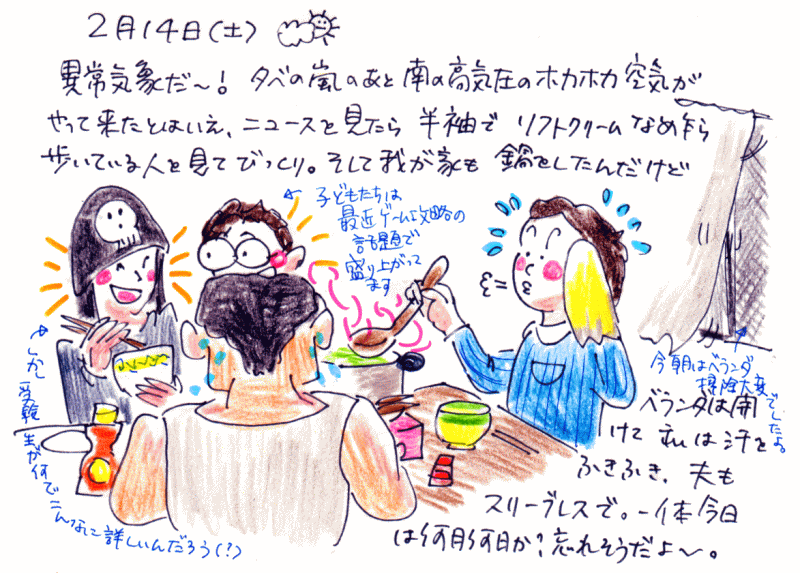 2月14日(土)
異常気象だ〜! 夕べの嵐のあと 南の高気圧のホカホカ空気が
やって来たとはいえ、ニュースを見たら 半袖で ソフトクリームなめながら
歩いている人を見てびっくり。そして我が家も 鍋をしたんだけど
ベランダは開
けて 私は汗を
ふきふき、夫も
スリーブレスで。一体今日
は何月何日か?忘れそうだよ〜。
子どもたちは
最近ゲーム攻略の
話題で
盛り上がって
ます
しかし受験生が何でこんなに詳しいんだろう(?)
今朝はベランダ
掃除大変でしたよ。